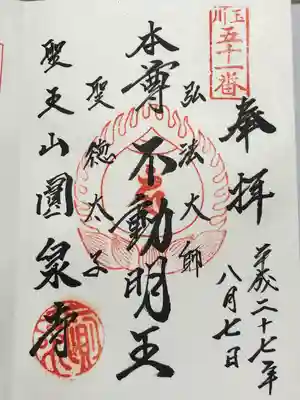 玉川
五十一番
奉拝
平成二十七年
八月七日
弘法大師
本尊 不動明王
聖徳太子
聖王山圓泉寺